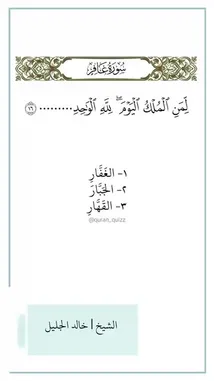 سُورَةُ غَافِرٍ
لِّمَنِ الْمُلْكُ الْيَوْمَ ۖ لِلَّهِ الْوَاحِدِ......... ١٦
١- الغَفَّارِ
٢- الجَبَّارَ
٣- القَهَّارِ
@quran_quizz
الشيخ | خالد الجليل